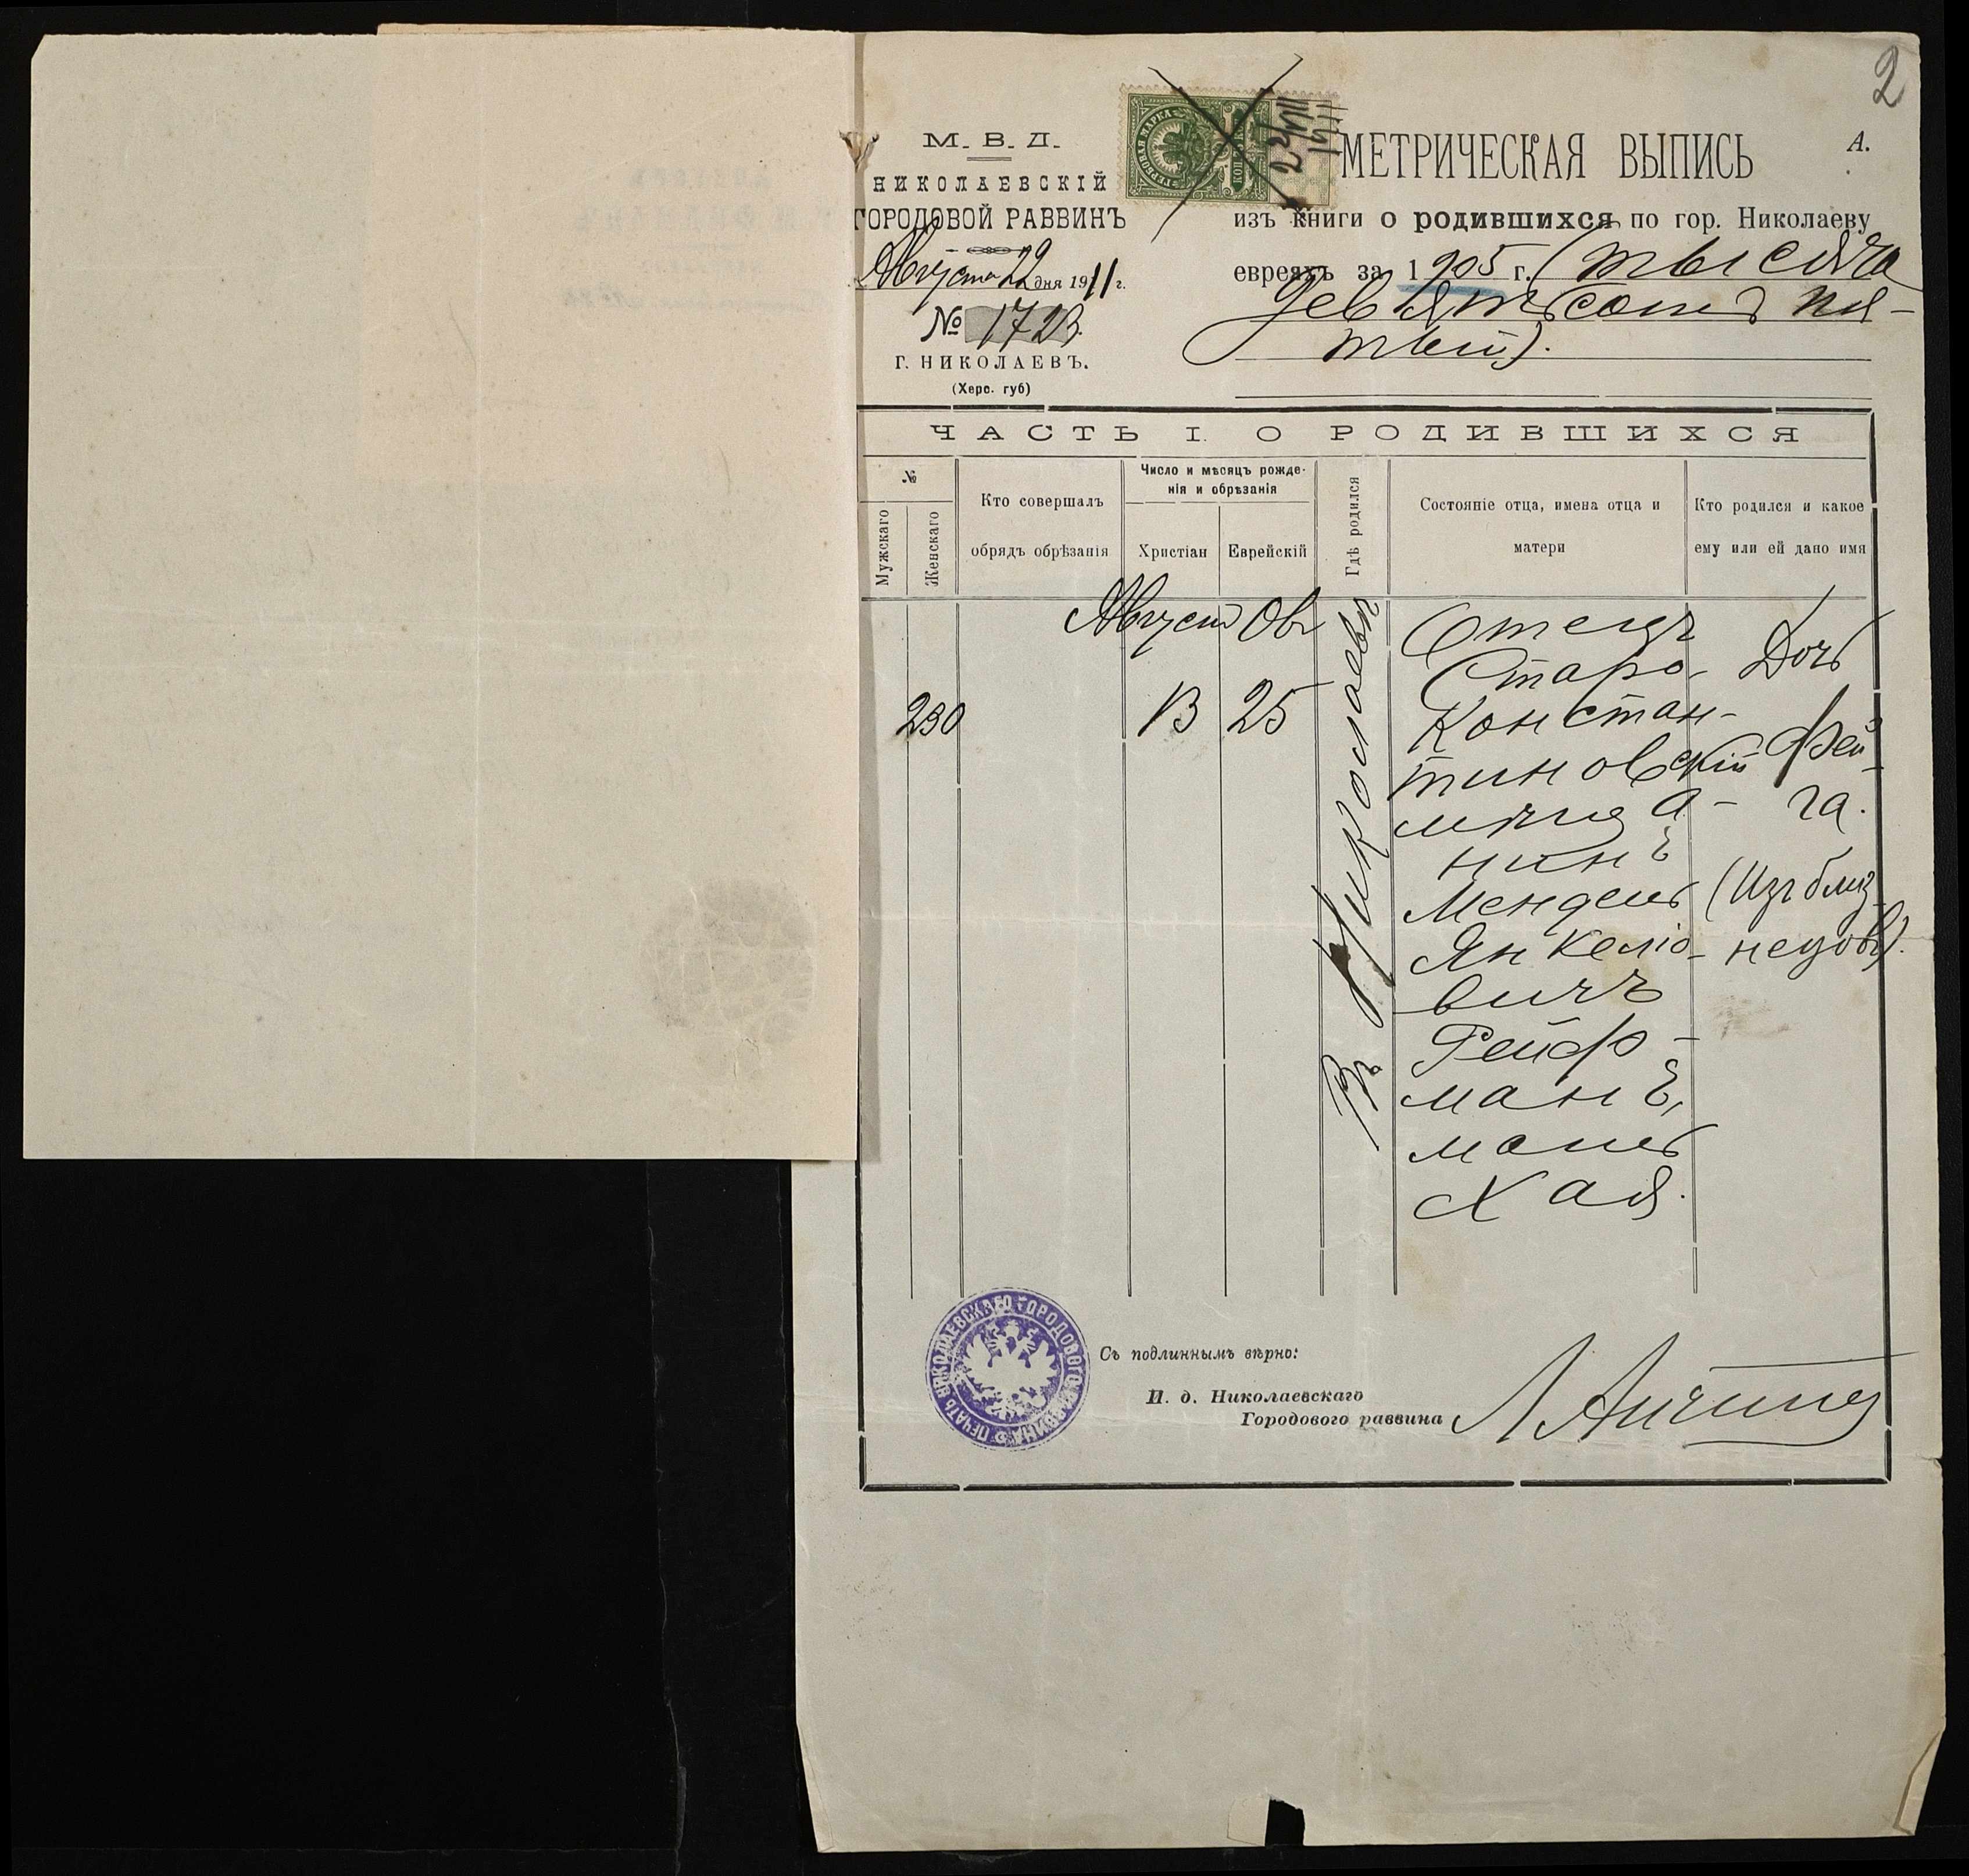 2
М. В. Д.
НИКОЛАЕВСКІЙ
ГОРОДОВОЙ РАВВИНЪ
Августа 22 дня 1911 г.
№ 1723.
Г. НИКОЛАЕВЪ.
(Херс. губ)
ГЕРБОВАЯ МАРКА
КОП
22/VIII
1911
МЕТРИЧЕСКАЯ ВЫПИСЬ
А.
изъ книги о родившихся по гор. Николаеву
евреяхъ за 1905 г. (тысяча
девятьсотъ пя-
тый).
ЧАСТЬ I. О РОДИВШИХСЯ
№
Мужскаго
Женскаго
Кто совершалъ
обрядъ обрѣзанія
Число и мѣсяцъ рожде-
нія и обрѣзанія
Христіан
Еврейскій
Гдѣ родился
Состояніе отца, имена отца и
матери
Кто родился и какое
ему или ей дано имя
230
Август
13
Овъ
25
Въ Николаевѣ
Отецъ
Старо-
Констан-
тиновскій
мѣща-
нинъ
Мендель
Янкеліо-
вичъ
Рейф-
манъ,
мать
Хая.
Дочь
Фей-
га.
(Изъ близ-
нецовъ).
ПЕЧАТЬ НИКОЛАЕВСКАГО ГОРОДОВОГО РАВВИНА
Съ подлиннымъ вѣрно:
И. д. Николаевскаго
Городового раввина